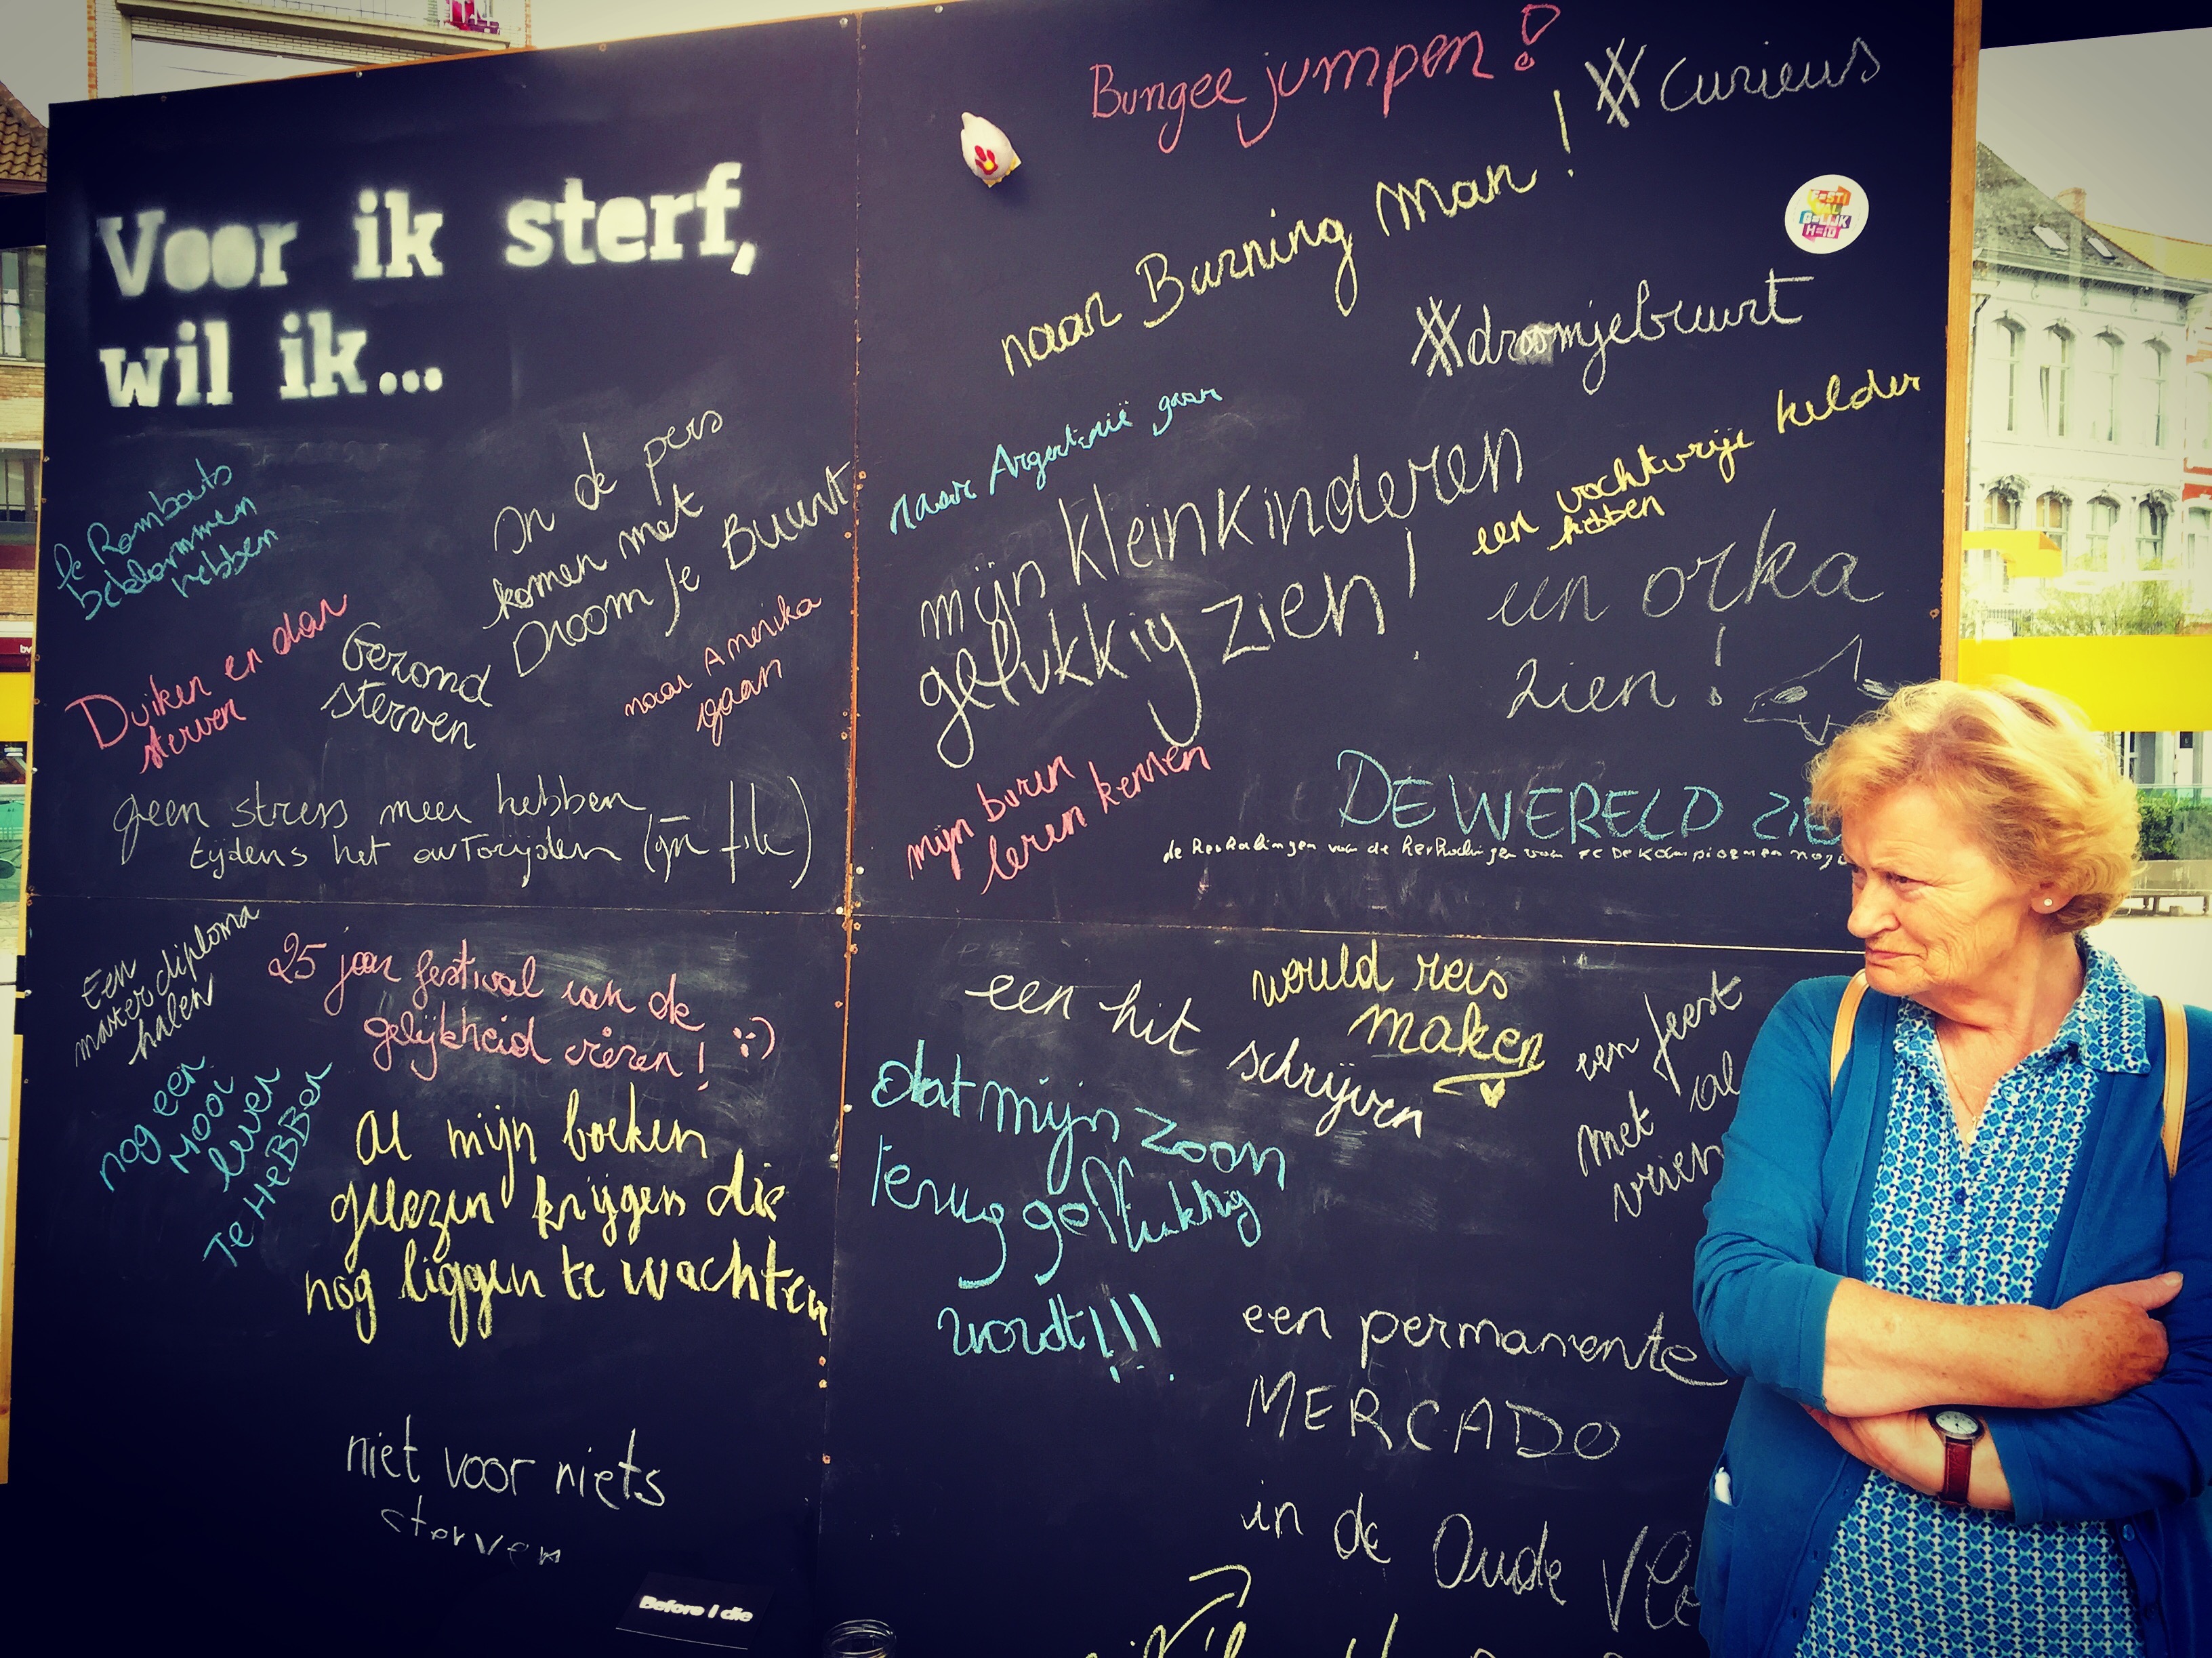 Voor ik sterf,
wil ik...
Bungee jumpen!
#curieus
naar Burning Man!
FESTI
VAL
GELIJK
HEID
#droomjebuurt
naar Argentinië gaan
een vochtvrije kelder
hebben
mijn kleinkinderen
gelukkig zien!
een orka
zien!
De Rombouts
hebben
In de pers
komen met
Droom je Buurt
Duiken en dan
sterven
Gezond
sterven
naar Amerika
gaan
geen stress meer hebben
tijdens het autorijden
mijn buren
leren kennen
DE WERELD ZIE
de herhalingen van de herhalingen van FC De Kampioenen
Een
master diploma
halen
25 jaar festival van de
gelijkheid vieren! :)
nog een
mooi
leven
Te HeBBen
Al mijn boeken
gelezen krijgen die
nog liggen te wachten
niet voor niets
sterven
Before I die
een hit
schrijven
would reis
maken
een feest
met al
vrien
dat mijn zoon
terug gelukkig
wordt!!!
een permanente
MERCADO
in de Oude